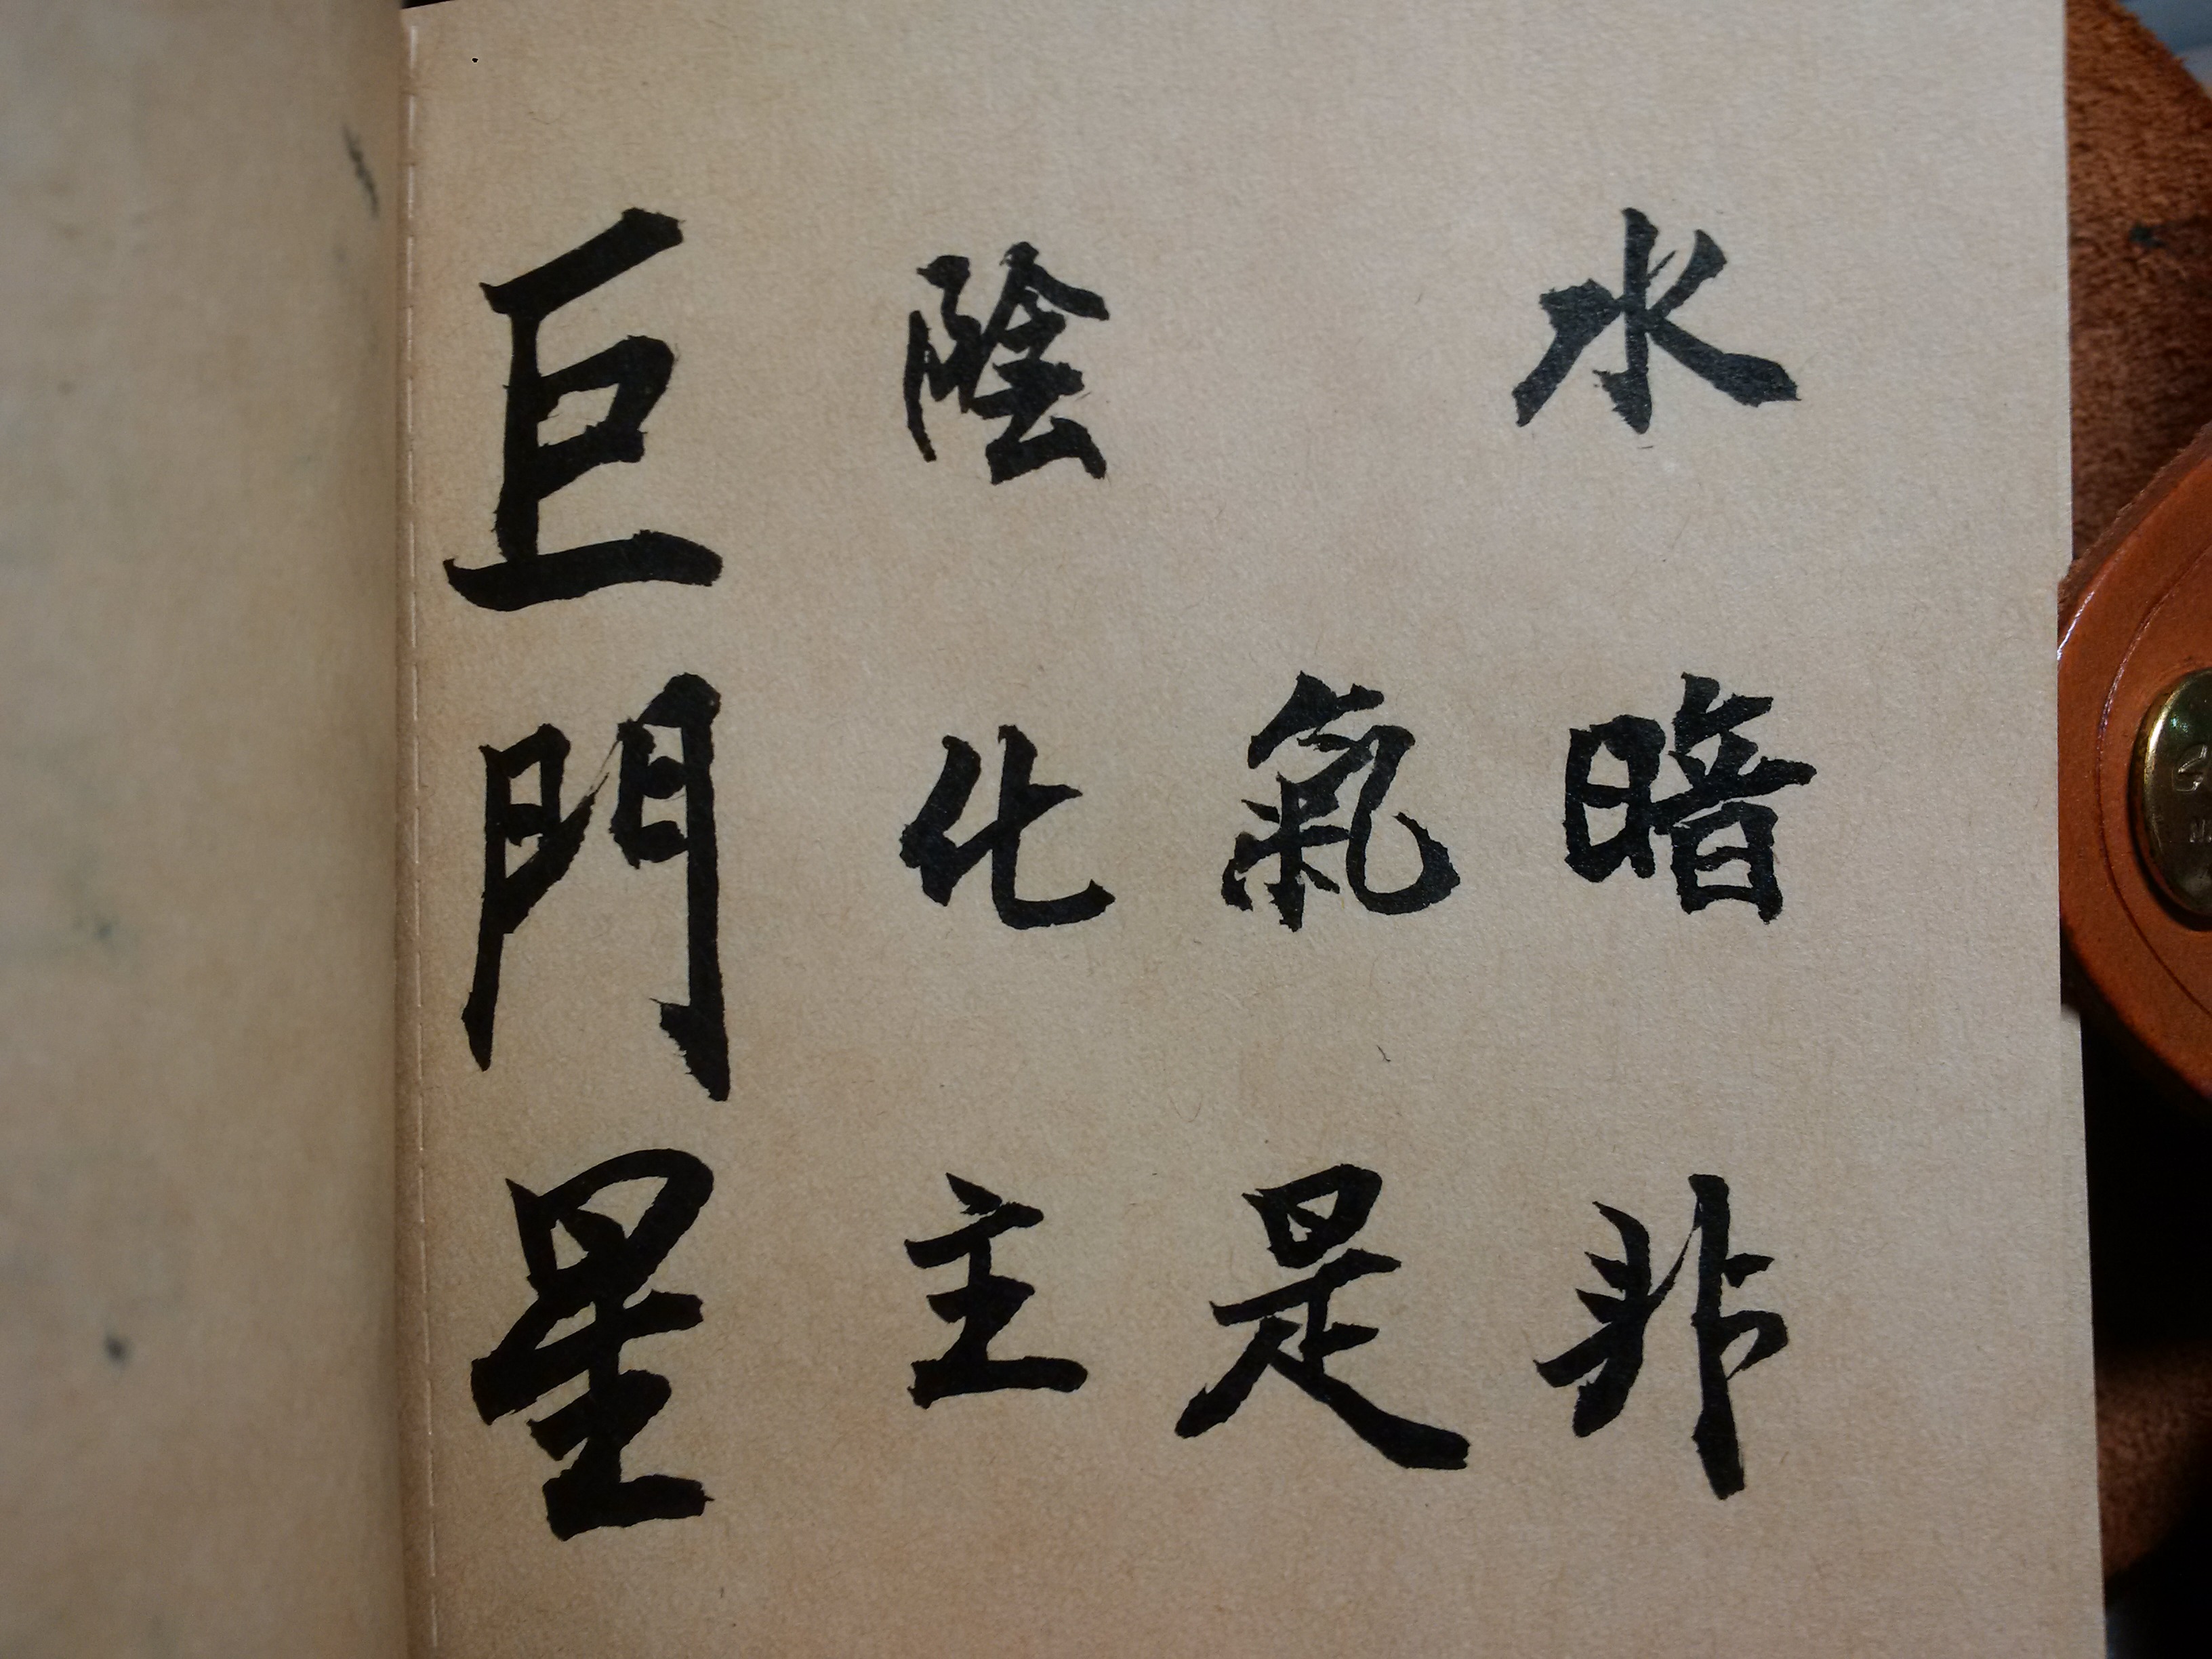 巨門星
陰 水
化氣暗
主是非